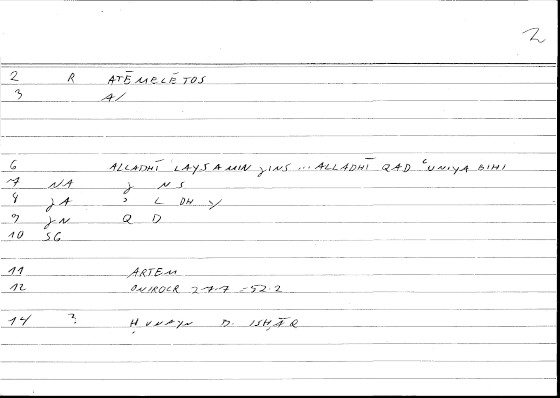 2
2 R ATĒMELĒTOS
3 A/
6 ALLADHĪ LAYSA MIN ǧINS ... ALLADHĪ QAD ʿUNIYA BIHI
7 NA ǧ N S
8 ǧA ʾ L DH Y
9 ǧN Q D
10 SG
11 ARTEM
12 ONIROCR 277 = 52.2
14 ? ḤUNAYN B. ISḤĀQ